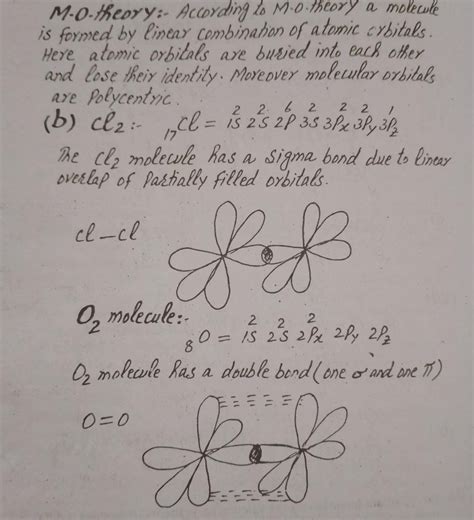 M·O·theory:- According to M·O·theory a molecule
is formed by linear combination of atomic orbitals.
Here atomic orbitals are buried into each other
and lose their identity. Moreover molecular orbitals
are Polycentric.
(b) Cl₂:- ₁₇Cl = 1S² 2S² 2P⁶ 3S² 3Px² 3Py² 3Pz¹
The Cl₂ molecule has a sigma bond due to linear
overlap of Partially filled orbitals.
Cl–Cl
O₂ molecule:-
₈O = 1S² 2S² 2Px² 2Py 2Pz
O₂ molecule has a double bond (one σ and one π)
O=O